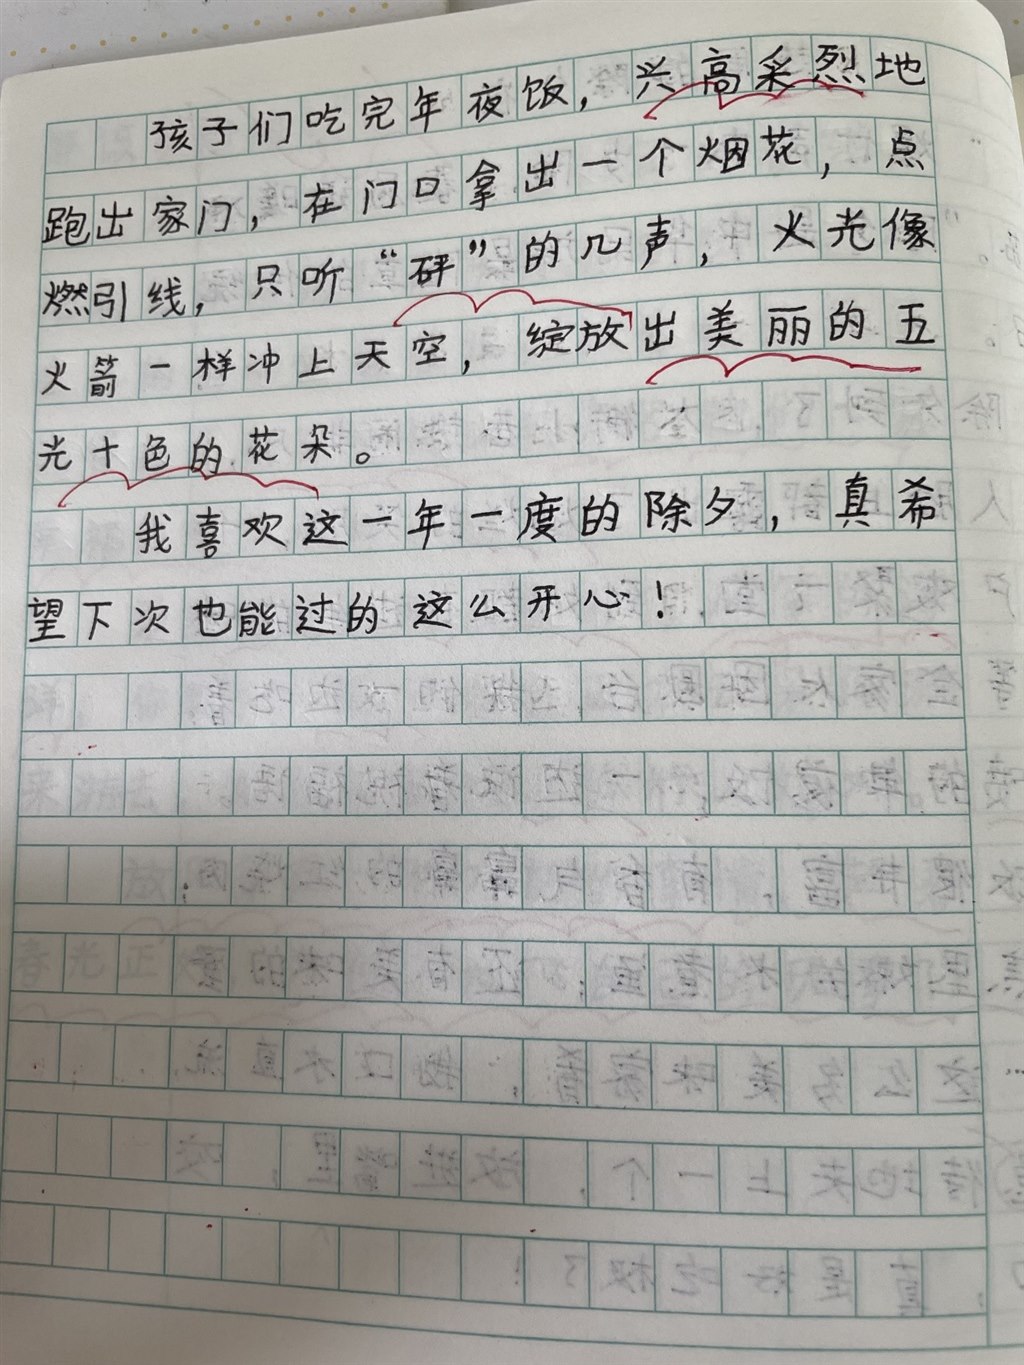 孩子们吃完年夜饭，兴高采烈地
跑出家门，在门口拿出一个烟花，点
燃引线，只听“砰”的几声，火光像
火箭一样冲上天空，绽放出美丽的五
光十色的花朵。
我喜欢这一年一度的除夕，真希
望下次也能过的这么开心！